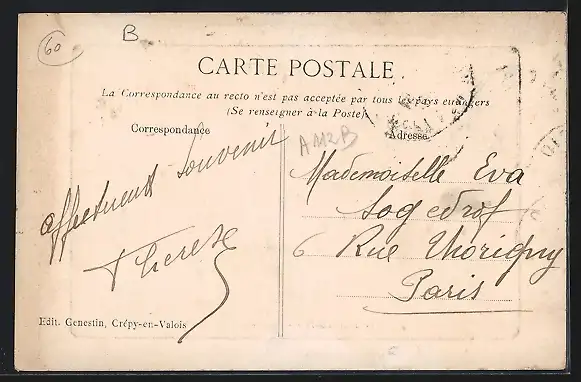 60
B
CARTE POSTALE
La Correspondance au recto n'est pas acceptée par tous les pays étrangers
(Se renseigner à la Poste)
Correspondance
Adresse
A112B
affectueux souvenir
Therese
Mademoiselle Eva
Sogedrof
6 Rue Thorigny
Paris
Edit. Genestin, Crépy-en-Valois